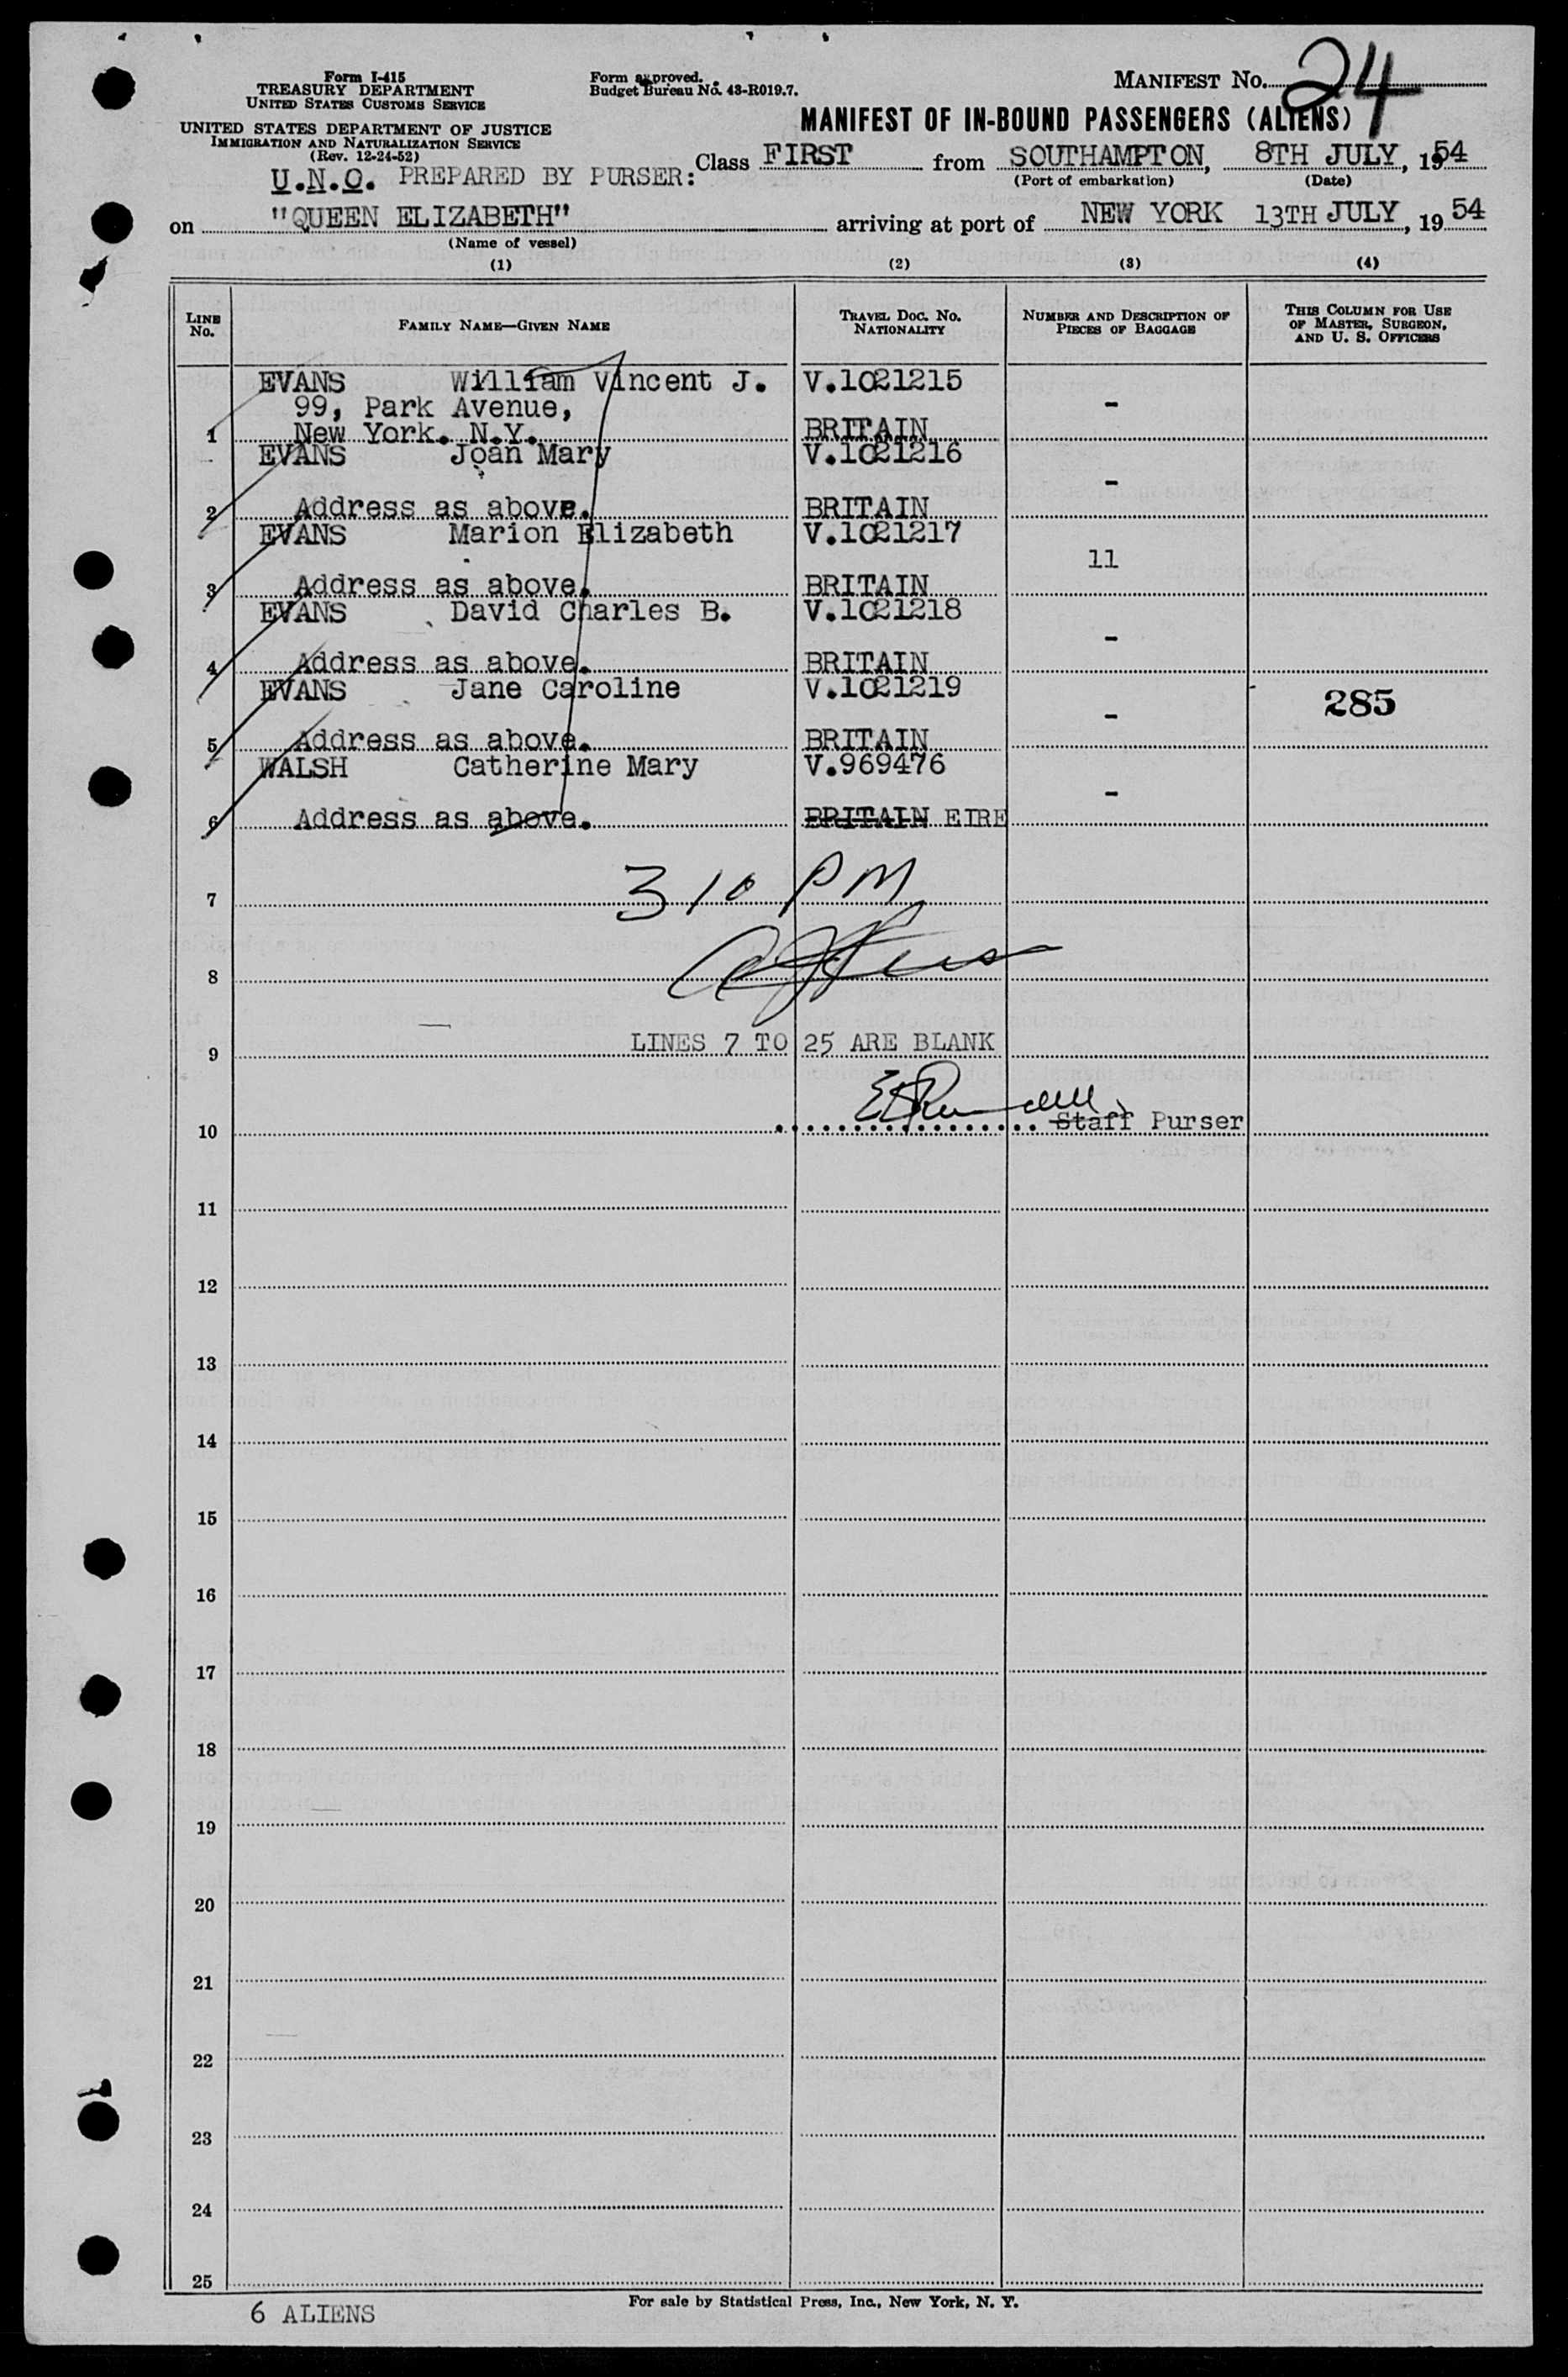 Form I-415
TREASURY DEPARTMENT
UNITED STATES CUSTOMS SERVICE
UNITED STATES DEPARTMENT OF JUSTICE
IMMIGRATION AND NATURALIZATION SERVICE
(Rev. 12-24-52)
Form approved.
Budget Bureau No. 43-R019.7.
MANIFEST No. 24
MANIFEST OF IN-BOUND PASSENGERS (ALIENS)
U.N.O. PREPARED BY PURSER: Class FIRST from SOUTHAMPTON, 8TH JULY, 1954
(Port of embarkation) (Date)
on "QUEEN ELIZABETH" arriving at port of NEW YORK 13TH JULY, 1954
(Name of vessel)
(1) (2) (3) (4)
LINE No. FAMILY NAME—GIVEN NAME TRAVEL DOC. No. NATIONALITY NUMBER AND DESCRIPTION OF PIECES OF BAGGAGE THIS COLUMN FOR USE OF MASTER, SURGEON, AND U. S. OFFICERS
EVANS William Vincent J. V.1021215
99, Park Avenue, -
1 New York. N.Y. BRITAIN
EVANS Joan Mary V.1021216
-
2 Address as above. BRITAIN
EVANS Marion Elizabeth V.1021217
11
3 Address as above. BRITAIN
EVANS David Charles B. V.1021218
-
4 Address as above. BRITAIN
EVANS Jane Caroline V.1021219
- 285
5 Address as above. BRITAIN
WALSH Catherine Mary V.969476
-
6 Address as above. BRITAIN EIRE
7 310 PM
8
9 LINES 7 TO 25 ARE BLANK
10 Staff Purser
11
12
13
14
15
16
17
18
19
20
21
22
23
24
25
6 ALIENS
For sale by Statistical Press, Inc., New York, N. Y.